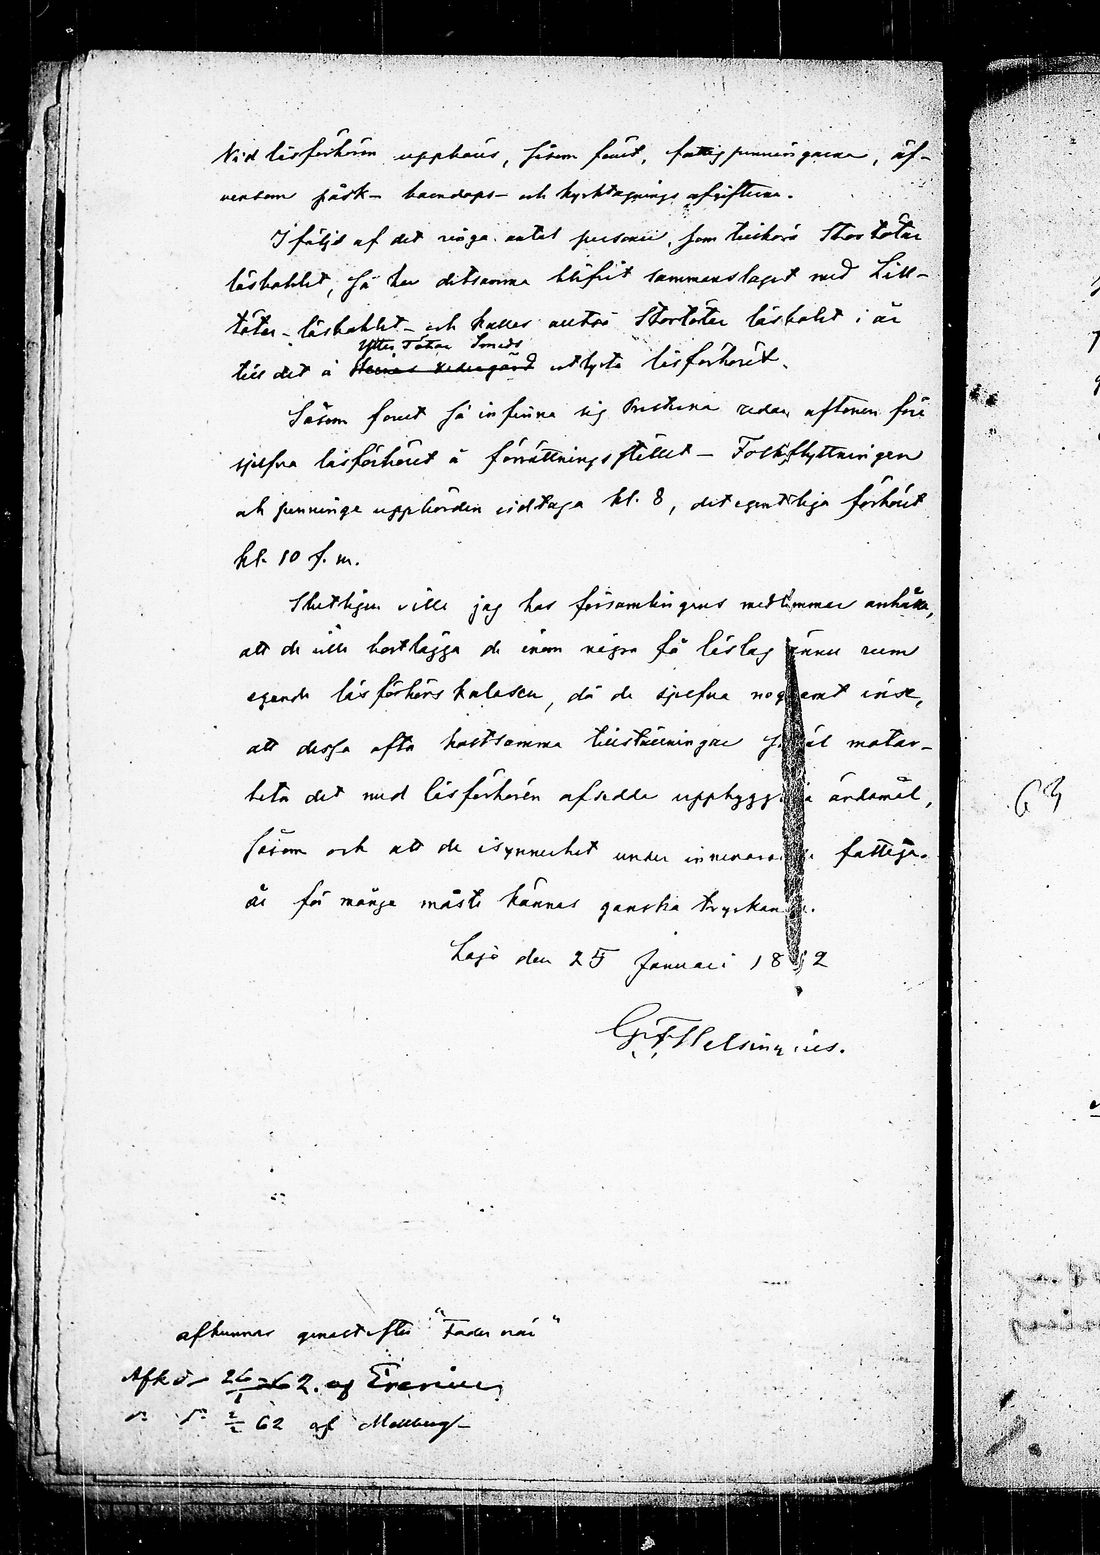 Vid läsförhören uppbäres, såsom förut, fattigpenningarne, äf-
vensom påsk- barndops- och kyrktagnings afgifterna.
I följd af det ringa antal personer, som tillhöra Stortötar
läskablet, så har detsamma blifvit sammanslaget med Lill-
tötar-läskablet och kallas alltså Stortötar läskabel i år
Ytter Tötar Smeds
till det å utlysta läsförhöret.
Såsom förut så infinna sig Presterna redan aftonen före
sjelfva läsförhöret å förrättningsstället – Folkflyttningen
och penninge uppbörden vidtaga kl. 8, det egentliga förhöret
kl. 10 f. m.
Slutligen ville jag hos församlingens medlemmar anhålla,
att de ville bortlägga de inom några få läslag ännu rum
egande läsförhörs kalasen, då de sjelfva nogsamt inse,
att dessa ofta kostsamma tillställningar såväl motar-
beta det med läsförhören afsedda uppbyggliga ändamål,
såsom och att de isynnerhet under innevarande fattiga
år för många måste kännas ganska tryckande.
Lojo den 25 Januari 1862
G. F. Helsingius.
afkunnas genast efter "Fader vår"
Afk. 26/1 62. af
d:o d:o 2/2 62 af Mellberg